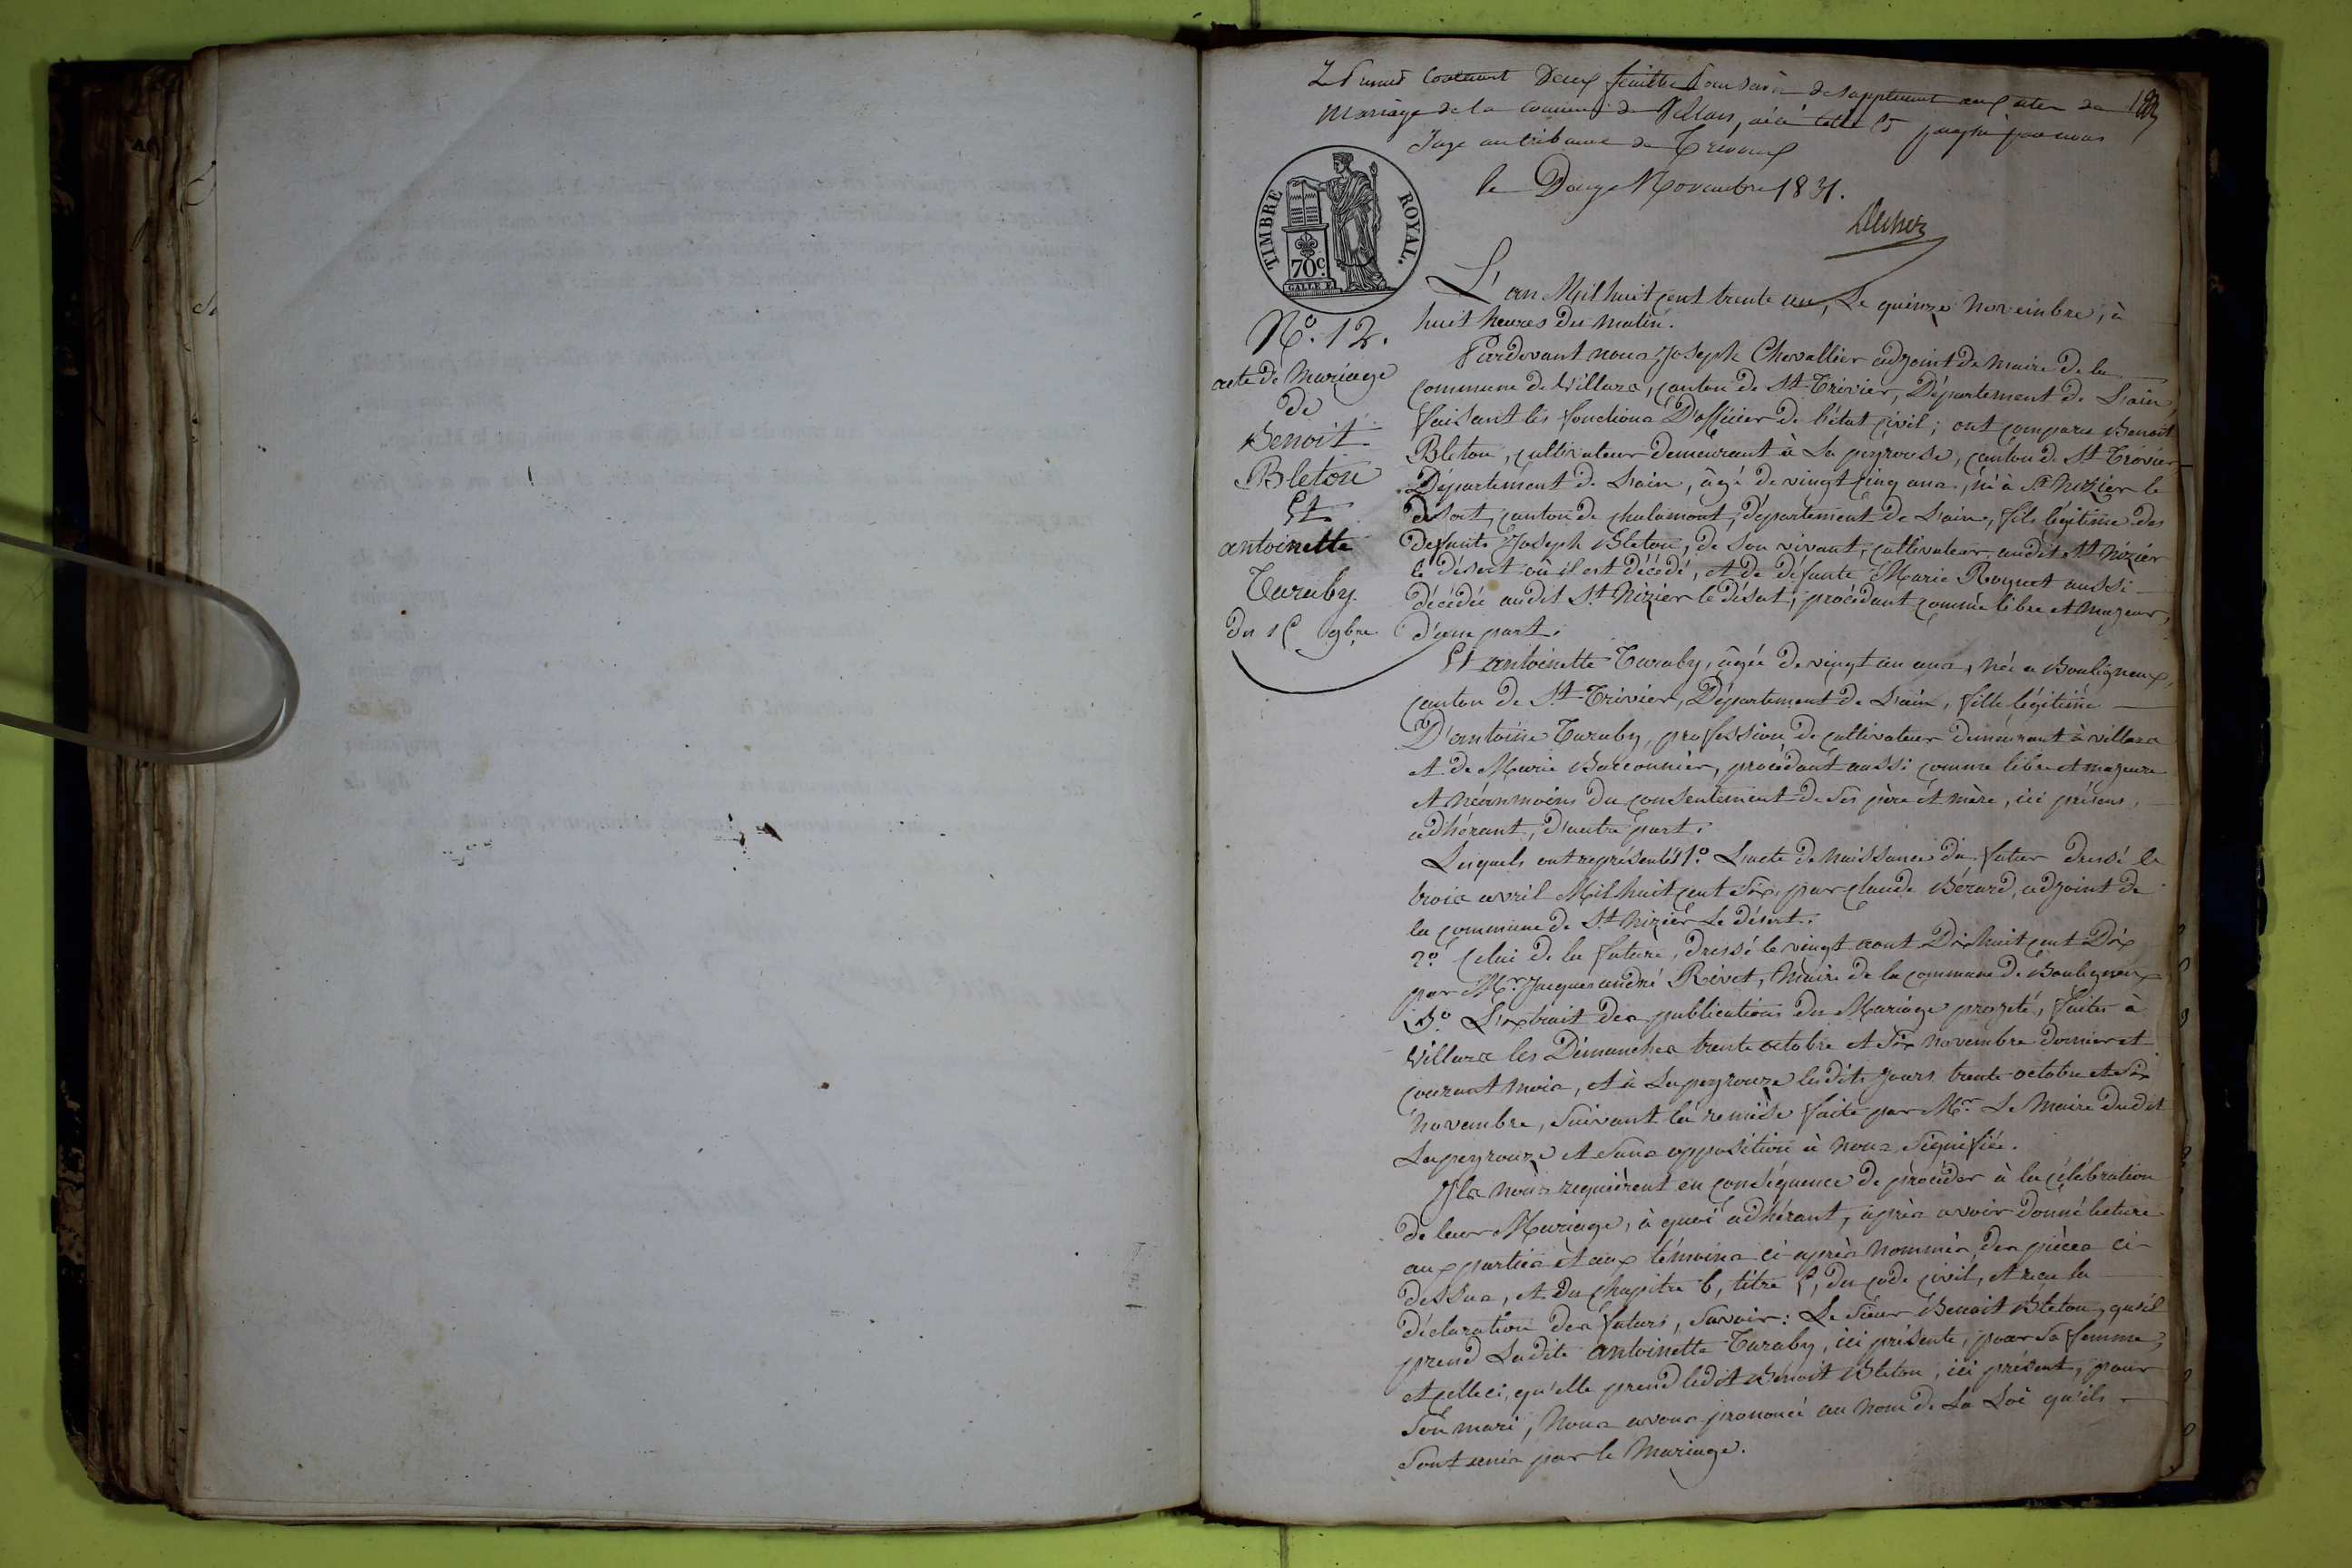 Le present contenant Deux feuilles pour servir de supplement aux actes de
Mariage de la commune de Villars, a été coté et paraphé par nous
Juge au tribunal de Trevoux
le Douze Novembre 1831.
TIMBRE ROYAL.
70c.
L'an Mil huit cent trente un, Le quinze Novembre, à
huit heures du matin.
N.o 12.
acte de Mariage
de
Benoit
Bleton
Et
antoinette
Taraby
du 15 9bre
Pardevant nous Joseph Chevallier adjoint de maire de la
commune de Villars, canton de St Trivier, Département de L'ain,
faisant les fonctions D'officier de l'état civil; ont comparu Benoit
Bleton, cultivateur demeurant à La peyrouse, canton de St Trivier
Département de L'ain, âgé de vingt cinq ans, né à St Nizier le
desert, canton de chalamont, département de L'ain, fils légitime des
defunts Joseph Bleton, de son vivant, cultivateur audit St Nizier
le désert où il est décédé, et de défunte Marie Roquet aussi
décédée audit St Nizier le désert, procédant comme libre et majeur,
d'une part.
Et antoinette Taraby, âgée de vingt un ans, née a Bouligneux,
canton de St Trivier, Département de L'ain, fille légitime
D'antoine Taraby, profession de cultivateur demeurant à villars
et de Marie Bacconnier, procédant aussi comme libre et majeure
et néanmoins du consentement de ses père et mère, ici présens,
adhérant, d'autre part.
Lesquels ont représentés 1.o L'acte de naissance du futur dressé le
trois avril Mil huit cent six, par Claude Bérard, adjoint de
la commune de St Nizier le désert.
2.o Celui de la future, dressé le vingt aout Dix huit cent Dix
par Mr. Jacques andré Rivet, Maire de la commune de Bouligneux
3.o L'extrait des publications du Mariage projeté, faites à
Villars les Dimanches trente octobre et six novembre dernier et
courant mois, et à Lapeyrouze lesdits jours trente octobre et six
novembre, suivant la remise faite par Mr. Le Maire dudit
Lapeyrouze et sans opposition à nous signifiée.
Ils nous requièrent en conséquence de procéder à la célébration
de leur Mariage, à quoi adhérant, après avoir donné lecture
aux parties et aux témoins ci-après nommés, des pièces ci-
dessus, et du chapitre 6, titre 5, du code civil, et reçu la
déclaration des futurs, savoir: Le sieur Benoit Bleton, qu'il
prend Ladite antoinette Taraby, ici présente, pour sa femme,
et celle ci, qu'elle prend ledit Benoit Bleton, ici présent, pour
son mari, nous avons prononcé au nom de La Loi qu'ils
sont unis par le Mariage.